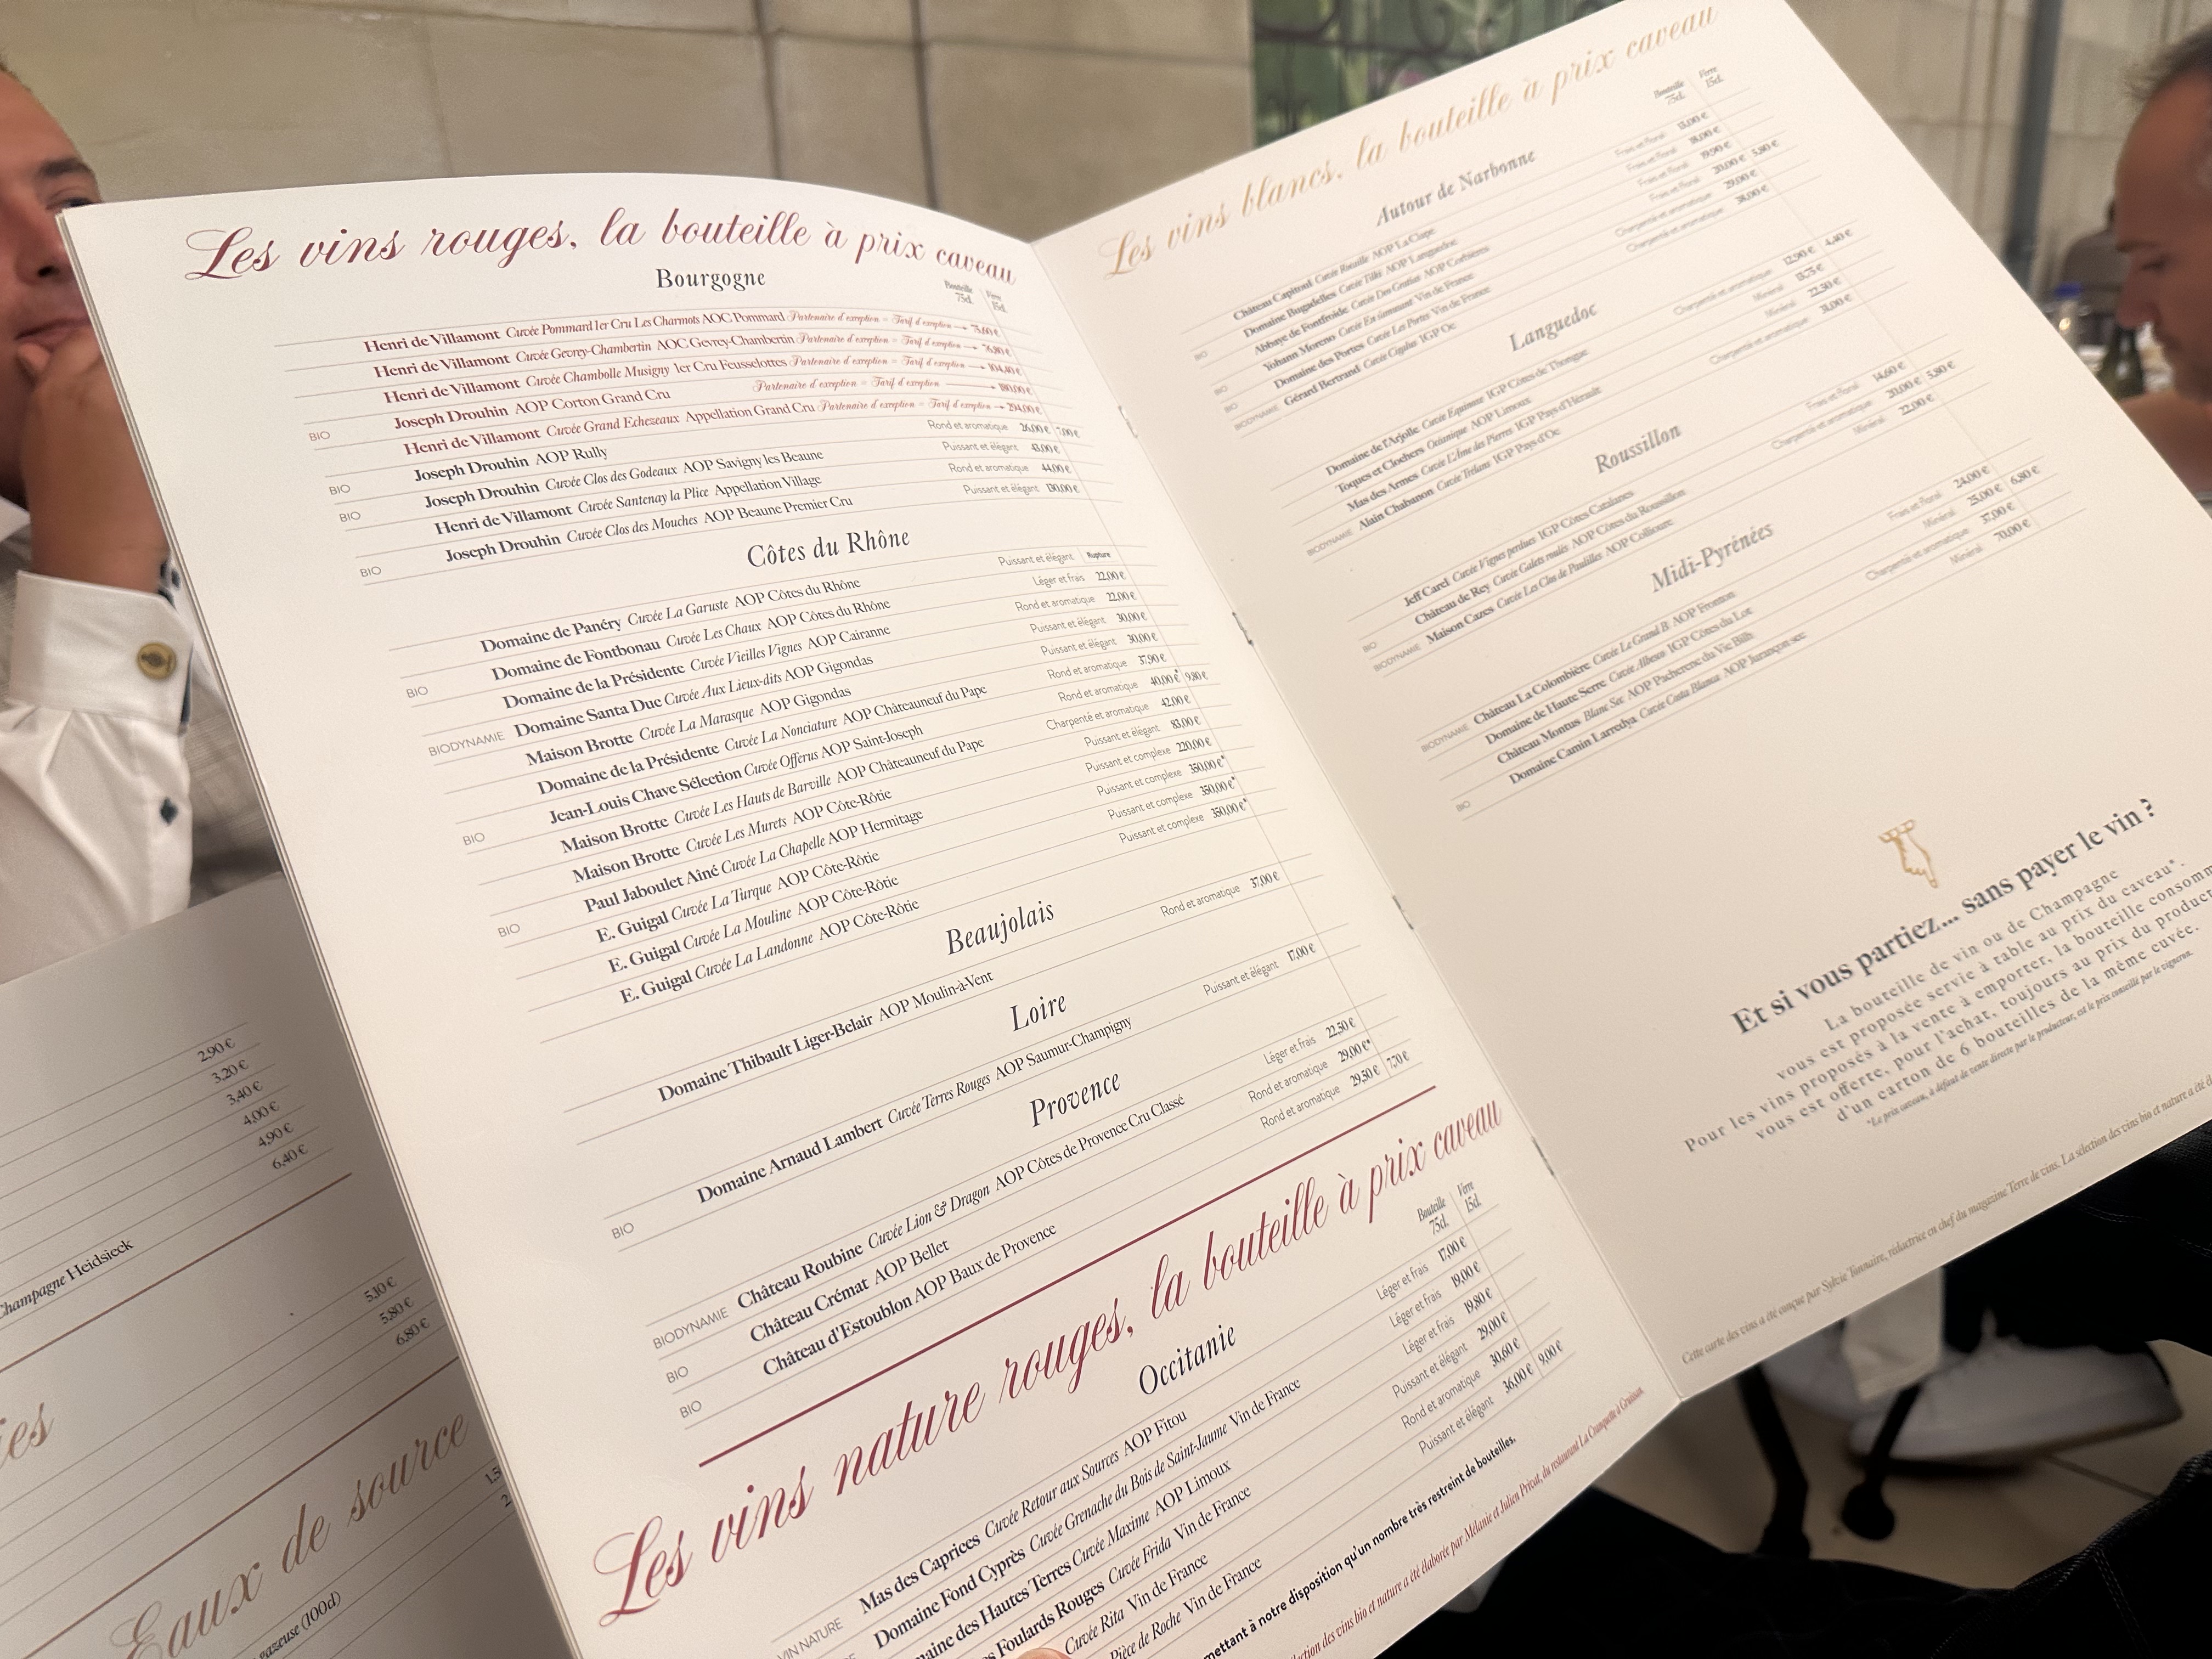 2.90 €
3.20 €
3.40 €
4.00 €
4.90 €
6.40 €
Champagne Heidsieck
5.10 €
5.80 €
6.80 €
Eaux de source
gazeuse (100cl)
Les vins rouges, la bouteille à prix caveau
Bouteille 75cl. Verre 15cl.
Bourgogne
Henri de Villamont Cuvée Pommard 1er Cru Les Charmots AOC Pommard Partenaire d'exception = Tarif d'exception 73.60 €
Henri de Villamont Cuvée Gevrey-Chambertin AOC Gevrey-Chambertin Partenaire d'exception = Tarif d'exception 76.80 €
Henri de Villamont Cuvée Chambolle Musigny 1er Cru Feusselottes Partenaire d'exception = Tarif d'exception 104.40 €
Joseph Drouhin AOP Corton Grand Cru Partenaire d'exception = Tarif d'exception 180.00 €
BIO Henri de Villamont Cuvée Grand Echezeaux Appellation Grand Cru Partenaire d'exception = Tarif d'exception 294.00 €
Joseph Drouhin AOP Rully Rond et aromatique 26.00 € 7.00 €
BIO Joseph Drouhin Cuvée Clos des Godeaux AOP Savigny les Beaune Puissant et élégant 43.00 €
BIO Henri de Villamont Cuvée Santenay la Plice Appellation Village Rond et aromatique 44.00 €
Joseph Drouhin Cuvée Clos des Mouches AOP Beaune Premier Cru Puissant et élégant 130.00 €
BIO
Côtes du Rhône
Domaine de Panéry Cuvée La Garuste AOP Côtes du Rhône Puissant et élégant Rupture
Domaine de Fontbonau Cuvée Les Chaux AOP Côtes du Rhône Léger et frais 22.00 €
BIO Domaine de la Présidente Cuvée Vieilles Vignes AOP Cairanne Rond et aromatique 22.00 €
Domaine Santa Duc Cuvée Aux Lieux-dits AOP Gigondas Puissant et élégant 30.00 €
BIODYNAMIE Maison Brotte Cuvée La Marasque AOP Gigondas Puissant et élégant 30.00 €
Domaine de la Présidente Cuvée La Nonciature AOP Châteauneuf du Pape Rond et aromatique 37.90 €
Jean-Louis Chave Sélection Cuvée Offerus AOP Saint-Joseph Rond et aromatique 40.00 €* 9.80 €
BIO Maison Brotte Cuvée Les Hauts de Barville AOP Châteauneuf du Pape Charpenté et aromatique 42.00 €
Maison Brotte Cuvée Les Murets AOP Côte-Rôtie Puissant et élégant 83.00 €
Paul Jaboulet Aîné Cuvée La Chapelle AOP Hermitage Puissant et complexe 220.00 €
BIO E. Guigal Cuvée La Turque AOP Côte-Rôtie Puissant et complexe 350.00 €*
E. Guigal Cuvée La Mouline AOP Côte-Rôtie Puissant et complexe 350.00 €*
E. Guigal Cuvée La Landonne AOP Côte-Rôtie Puissant et complexe 350.00 €*
Beaujolais
Domaine Thibault Liger-Belair AOP Moulin-à-Vent Rond et aromatique 37.00 €
Loire
Domaine Arnaud Lambert Cuvée Terres Rouges AOP Saumur-Champigny Puissant et élégant 17.00 €
BIO
Provence
Château Roubine Cuvée Lion & Dragon AOP Côtes de Provence Cru Classé Léger et frais 22.50 €
BIODYNAMIE Château Crémat AOP Bellet Rond et aromatique 29.00 €*
BIO Château d'Estoublon AOP Baux de Provence Rond et aromatique 29.50 € 7.70 €
BIO
Les vins nature rouges, la bouteille à prix caveau
Bouteille 75cl. Verre 15cl.
Occitanie
Mas des Caprices Cuvée Retour aux Sources AOP Fitou Léger et frais 17.00 €
VIN NATURE Domaine Fond Cyprès Cuvée Grenache du Bois de Saint-Jaume Vin de France Léger et frais 19.00 €
maine des Hautes Terres Cuvée Maxime AOP Limoux Léger et frais 19.80 €
s Foulards Rouges Cuvée Frida Vin de France Puissant et élégant 29.00 €
Cuvée Rita Vin de France Rond et aromatique 30.60 €
Pièce de Roche Vin de France Puissant et élégant 36.00 € 9.00 €
mettant à notre disposition qu'un nombre très restreint de bouteilles.
lection des vins bio et nature a été élaborée par Mélanie et Julien Privat, du restaurant La Cranquette à Gruissan
Les vins blancs, la bouteille à prix caveau
Bouteille 75cl. Verre 15cl.
Autour de Narbonne
Château Capitoul Cuvée Rocaille AOP La Clape Frais et floral 13.00 €
Domaine Bugadelles Cuvée Filhi AOP Languedoc Frais et floral 18.00 €
Abbaye de Fontfroide Cuvée Deo Gratias AOP Corbières Frais et floral 19.90 €
BIO Yohann Moreno Cuvée En Vin de France Frais et floral 20.00 € 5.80 €
Domaine des Portes Cuvée Les Portes Vin de France Charpenté et aromatique 29.00 €
BIO Gérard Bertrand Cuvée Cigalus IGP Oc Charpenté et aromatique 38.00 €
BIO
BIODYNAMIE
Languedoc
Domaine de l'Arjolle Cuvée Equinoxe IGP Côtes de Thongue Charpenté et aromatique 12.90 € 4.40 €
Toques et Clochers Océanique AOP Limoux Minéral 13.75 €
Mas des Armes Cuvée L'Âme des Pierres IGP Pays d'Hérault Minéral 22.50 €
Alain Chabanon Cuvée Trélans IGP Pays d'Oc Charpenté et aromatique 31.00 €
BIODYNAMIE
Roussillon
Jeff Carrel Cuvée Vignes perdues IGP Côtes Catalanes Frais et floral 14.60 €
Château de Rey Cuvée Galets roulés AOP Côtes du Roussillon Charpenté et aromatique 20.00 € 5.80 €
BIO Maison Cazes Cuvée Les Clos de Paulilles AOP Collioure Minéral 22.00 €
BIODYNAMIE
Midi-Pyrénées
Château La Colombière Cuvée Le Grand B AOP Fronton Frais et floral 24.00 €
Domaine de Haute Serre Cuvée Albesco IGP Côtes du Lot Minéral 25.00 € 6.80 €
BIODYNAMIE Château Montus Blanc Sec AOP Pacherenc du Vic Bilh Charpenté et aromatique 37.00 €
Domaine Camin Larredya Cuvée Costa Blanca AOP Jurançon sec Minéral 70.00 €
BIO
Et si vous partiez... sans payer le vin ?
La bouteille de vin ou de Champagne
vous est proposée servie à table au prix du caveau*.
Pour les vins proposés à la vente à emporter, la bouteille consomm
vous est offerte, pour l'achat, toujours au prix du product
d'un carton de 6 bouteilles de la même cuvée.
*Le prix caveau, à défaut de vente directe par le producteur, est le prix conseillé par le vigneron.
Cette carte des vins a été conçue par Sylvie Tonnaire, rédactrice en chef du magazine Terre de vins. La sélection des vins bio et nature a été